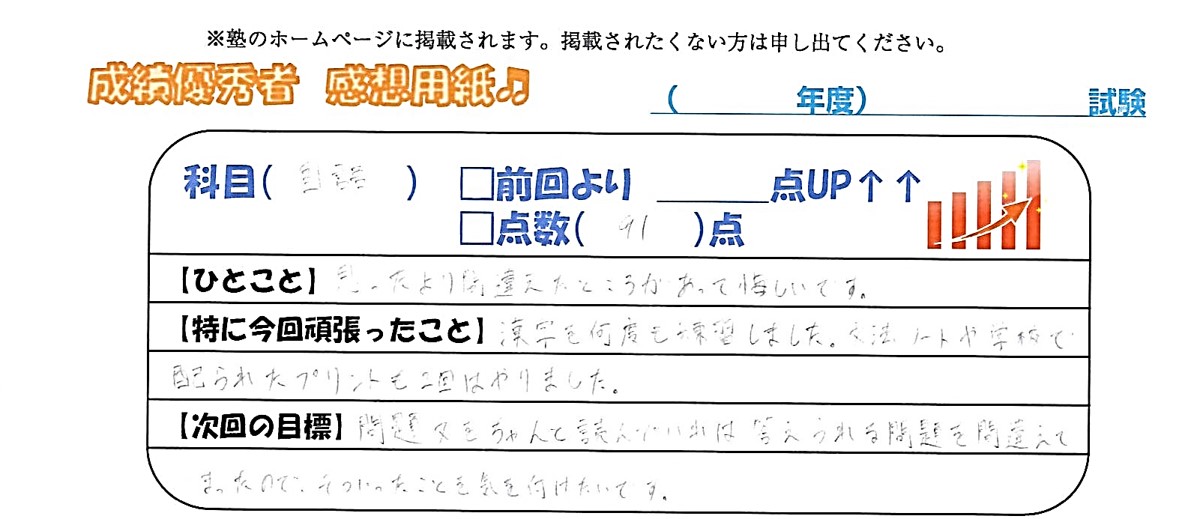 ※塾のホームページに掲載されます。掲載されたくない方は申し出てください。
成績優秀者 感想用紙♫
( 年度) 試験
科目( 国語 ) □前回より 点UP↑↑
□点数( 91 )点
【ひとこと】思ったより間違えたところがあって悔しいです。
【特に今回頑張ったこと】漢字を何度も練習しました。文法ノートや学校で
配られたプリントも二回はやりました。
【次回の目標】問題文をちゃんと読んでいれば答えられる問題を間違えて
まったので、そういったことを気を付けたいです。